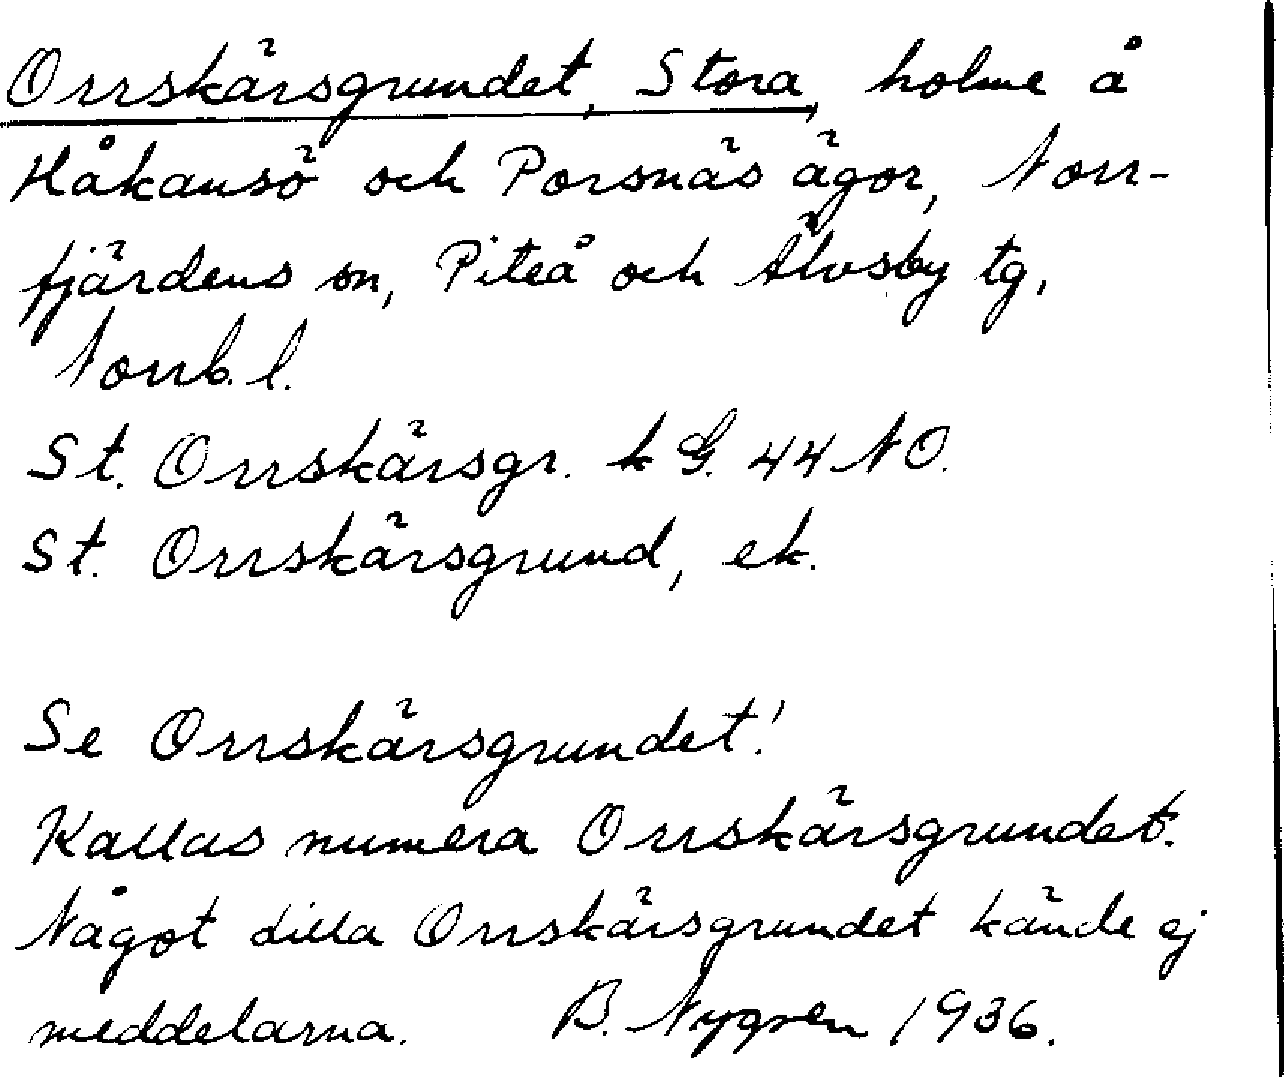 Orrskärsgrundet, Stora, holme å
Håkansö och Porsnäs ägor, Norr-
fjärdens sn, Piteå och Älvsby tg,
Norrb. l.
St. Orrskärsgr. k G. 44 NO.
St. Orrskärsgrund, ek.
Se Orrskärsgrundet!
Kallas numera Orrskärsgrundet.
Något Lilla Orrskärsgrundet kände ej
meddelarna. B. Nygren 1936.